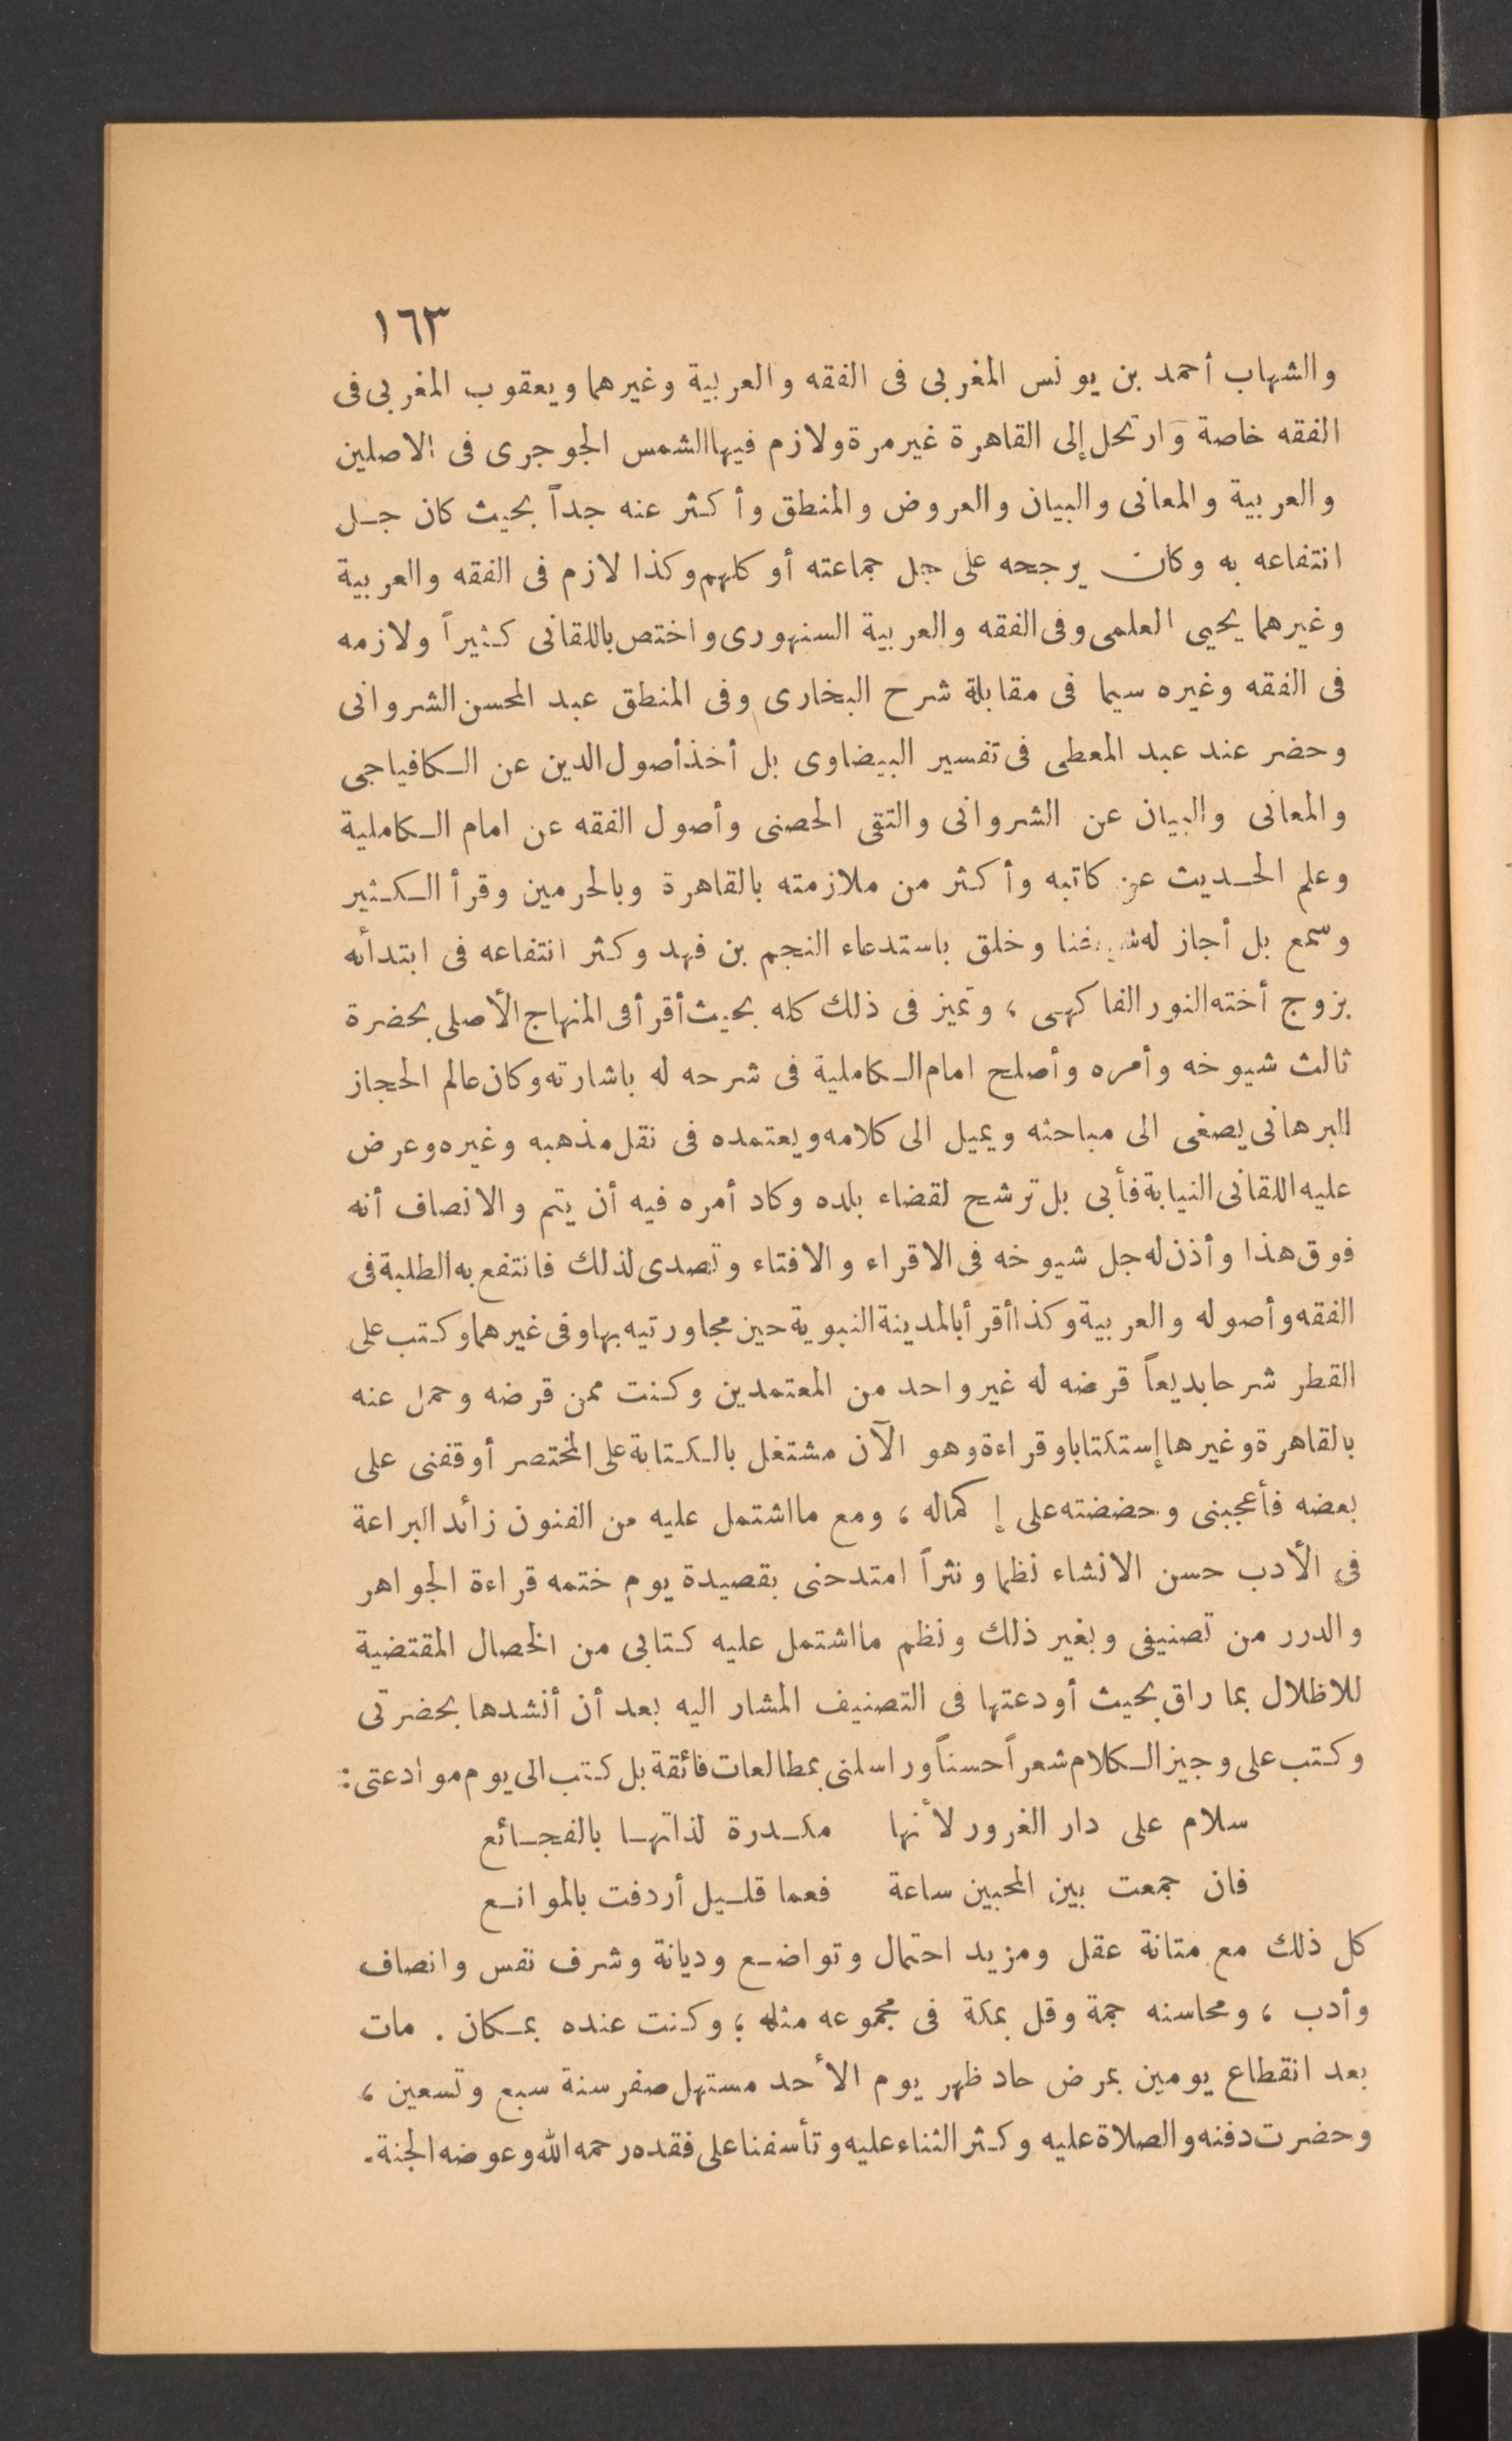 ١٦٣
والشهاب أحمد بن يونس المغربى فى الفقه والعربية وغيرهما ويعقوب المغربى فى
الفقه خاصة وارتحل إلى القاهرة غير مرة ولازم فيها الشمس الجوجرى فى الاصلين
والعربية والمعانى والبيان والعروض والمنطق وأكثر عنه جداً بحيث كان جل
انتفاعه به وكان يرجحه على جل جماعته أو كلهم وكذا لازم فى الفقه والعربية
وغيرهما يحيى العلمى وفى الفقه والعربية السنهورى واختص باللقانى كثيراً ولازمه
فى الفقه وغيره سيما فى مقابلة شرح البخارى وفى المنطق عبد المحسن الشروانى
وحضر عند عبد المعطى فى تفسير البيضاوى بل أخذ أصول الدين عن الكافياجى
والمعانى والبيان عن الشروانى والتقى الحصنى وأصول الفقه عن امام الكاملية
وعلم الحديث عن كاتبه وأكثر من ملازمته بالقاهرة وبالحرمين وقرأ الكثير
وسمع بل أجاز له وخلق باستدعاء النجم بن فهد وكثر انتفاعه فى ابتدائه
بزوج أخته النور الفاكهى ، وتميز فى ذلك كله بحيث أقرأ فى المنهاج الأصلى بحضرة
ثالث شيوخه وأمره وأصلح امام الكاملية فى شرحه له باشارته وكان عالم الحجاز
البرهانى يصغى الى مباحثه ويميل الى كلامه ويعتمده فى نقل مذهبه وغيره وعرض
عليه اللقانى النيابة فأبى بل ترشح لقضاء بلده وكاد أمره فيه أن يتم والانصاف أنه
فوق هذا وأذن له جل شيوخه فى الاقراء والافتاء وتصدى لذلك فانتفع به الطلبة فى
الفقه وأصوله والعربية وكذا أقرأ بالمدينة النبوية حين مجاورتيه بها وفى غيرهما وكتب على
القطر شرحا بديعاً قرضه له غير واحد من المعتمدين وكنت ممن قرضه وحمل عنه
بالقاهرة وغيرها إستكتابا وقراءة وهو الآن مشتغل بالكتابة على المختصر أوقفنى على
بعضه فأعجبنى وحضضته على إكماله ، ومع ما اشتمل عليه من الفنون زائد البراعة
فى الأدب حسن الانشاء نظما ونثراً امتدحنى بقصيدة يوم ختمه قراءة الجواهر
والدرر من تصنيفى وبغير ذلك ونظم ما اشتمل عليه كتابى من الخصال المقتضية
للاظلال بما راق بحيث أودعتها فى التصنيف المشار اليه بعد أن أنشدها بحضرتى
وكتب على وجيز الكلام شعراً حسناً وراسلنى بمطالعات فائقة بل كتب الى يوم موادعتى :
سلام على دار الغرور لأنها مكدرة لذاتها بالفجائع
فان جمعت بين المحبين ساعة فعما قليل أردفت بالموانع
كل ذلك مع متانة عقل ومزيد احتمال وتواضع وديانة وشرف نفس وانصاف
وأدب ، ومحاسنه جمة وقل بمكة فى مجموعه مثله ؛ وكنت عنده بمكان . مات
بعد انقطاع يومين بمرض حاد ظهر يوم الأحد مستهل صفر سنة سبع وتسعين ،
وحضرت دفنه والصلاة عليه وكثر الثناء عليه وتأسفنا على فقده رحمه الله وعوضه الجنة .